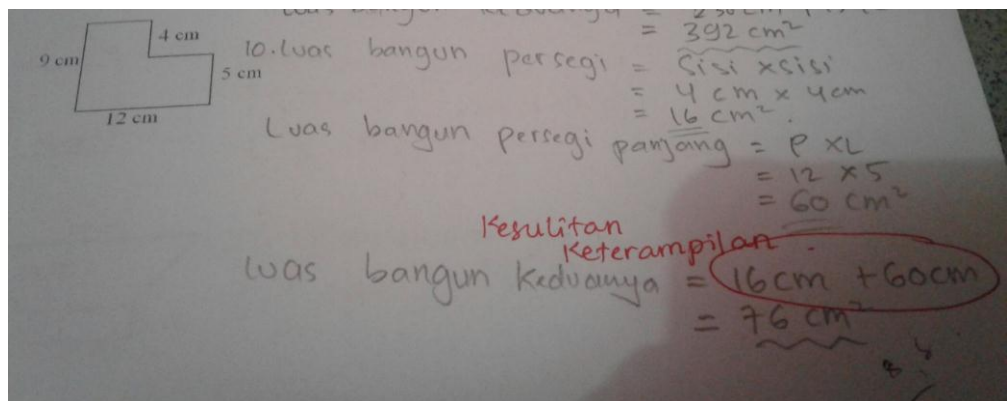 = 392 cm²
4 cm
9 cm
5 cm
12 cm
10. Luas bangun persegi = Sisi x sisi
= 4 cm x 4 cm
= 16 cm².
Luas bangun persegi panjang = P x L
= 12 x 5
= 60 cm²
Kesulitan
Keterampilan
Luas bangun Keduanya = 16 cm + 60 cm
= 76 cm²